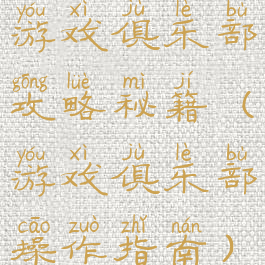 yóu xì jù lè bù
游戏俱乐部
gōng lüè mì jí
攻略秘籍（
yóu xì jù lè bù
游戏俱乐部
cāo zuò zhǐ nán
操作指南）